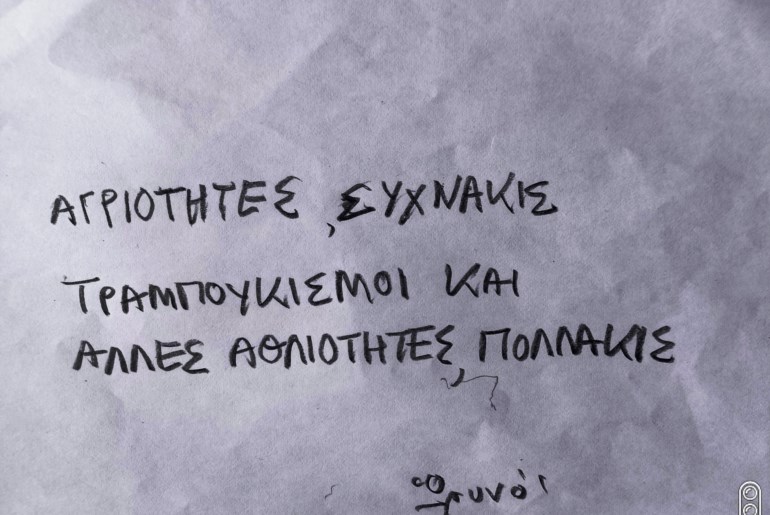 ΑΓΡΙΟΤΗΤΕΣ, ΣΥΧΝΑΚΙΣ
ΤΡΑΜΠΟΥΚΙΣΜΟΙ ΚΑΙ
ΑΛΛΕΣ ΑΘΛΙΟΤΗΤΕΣ, ΠΟΛΛΑΚΙΣ